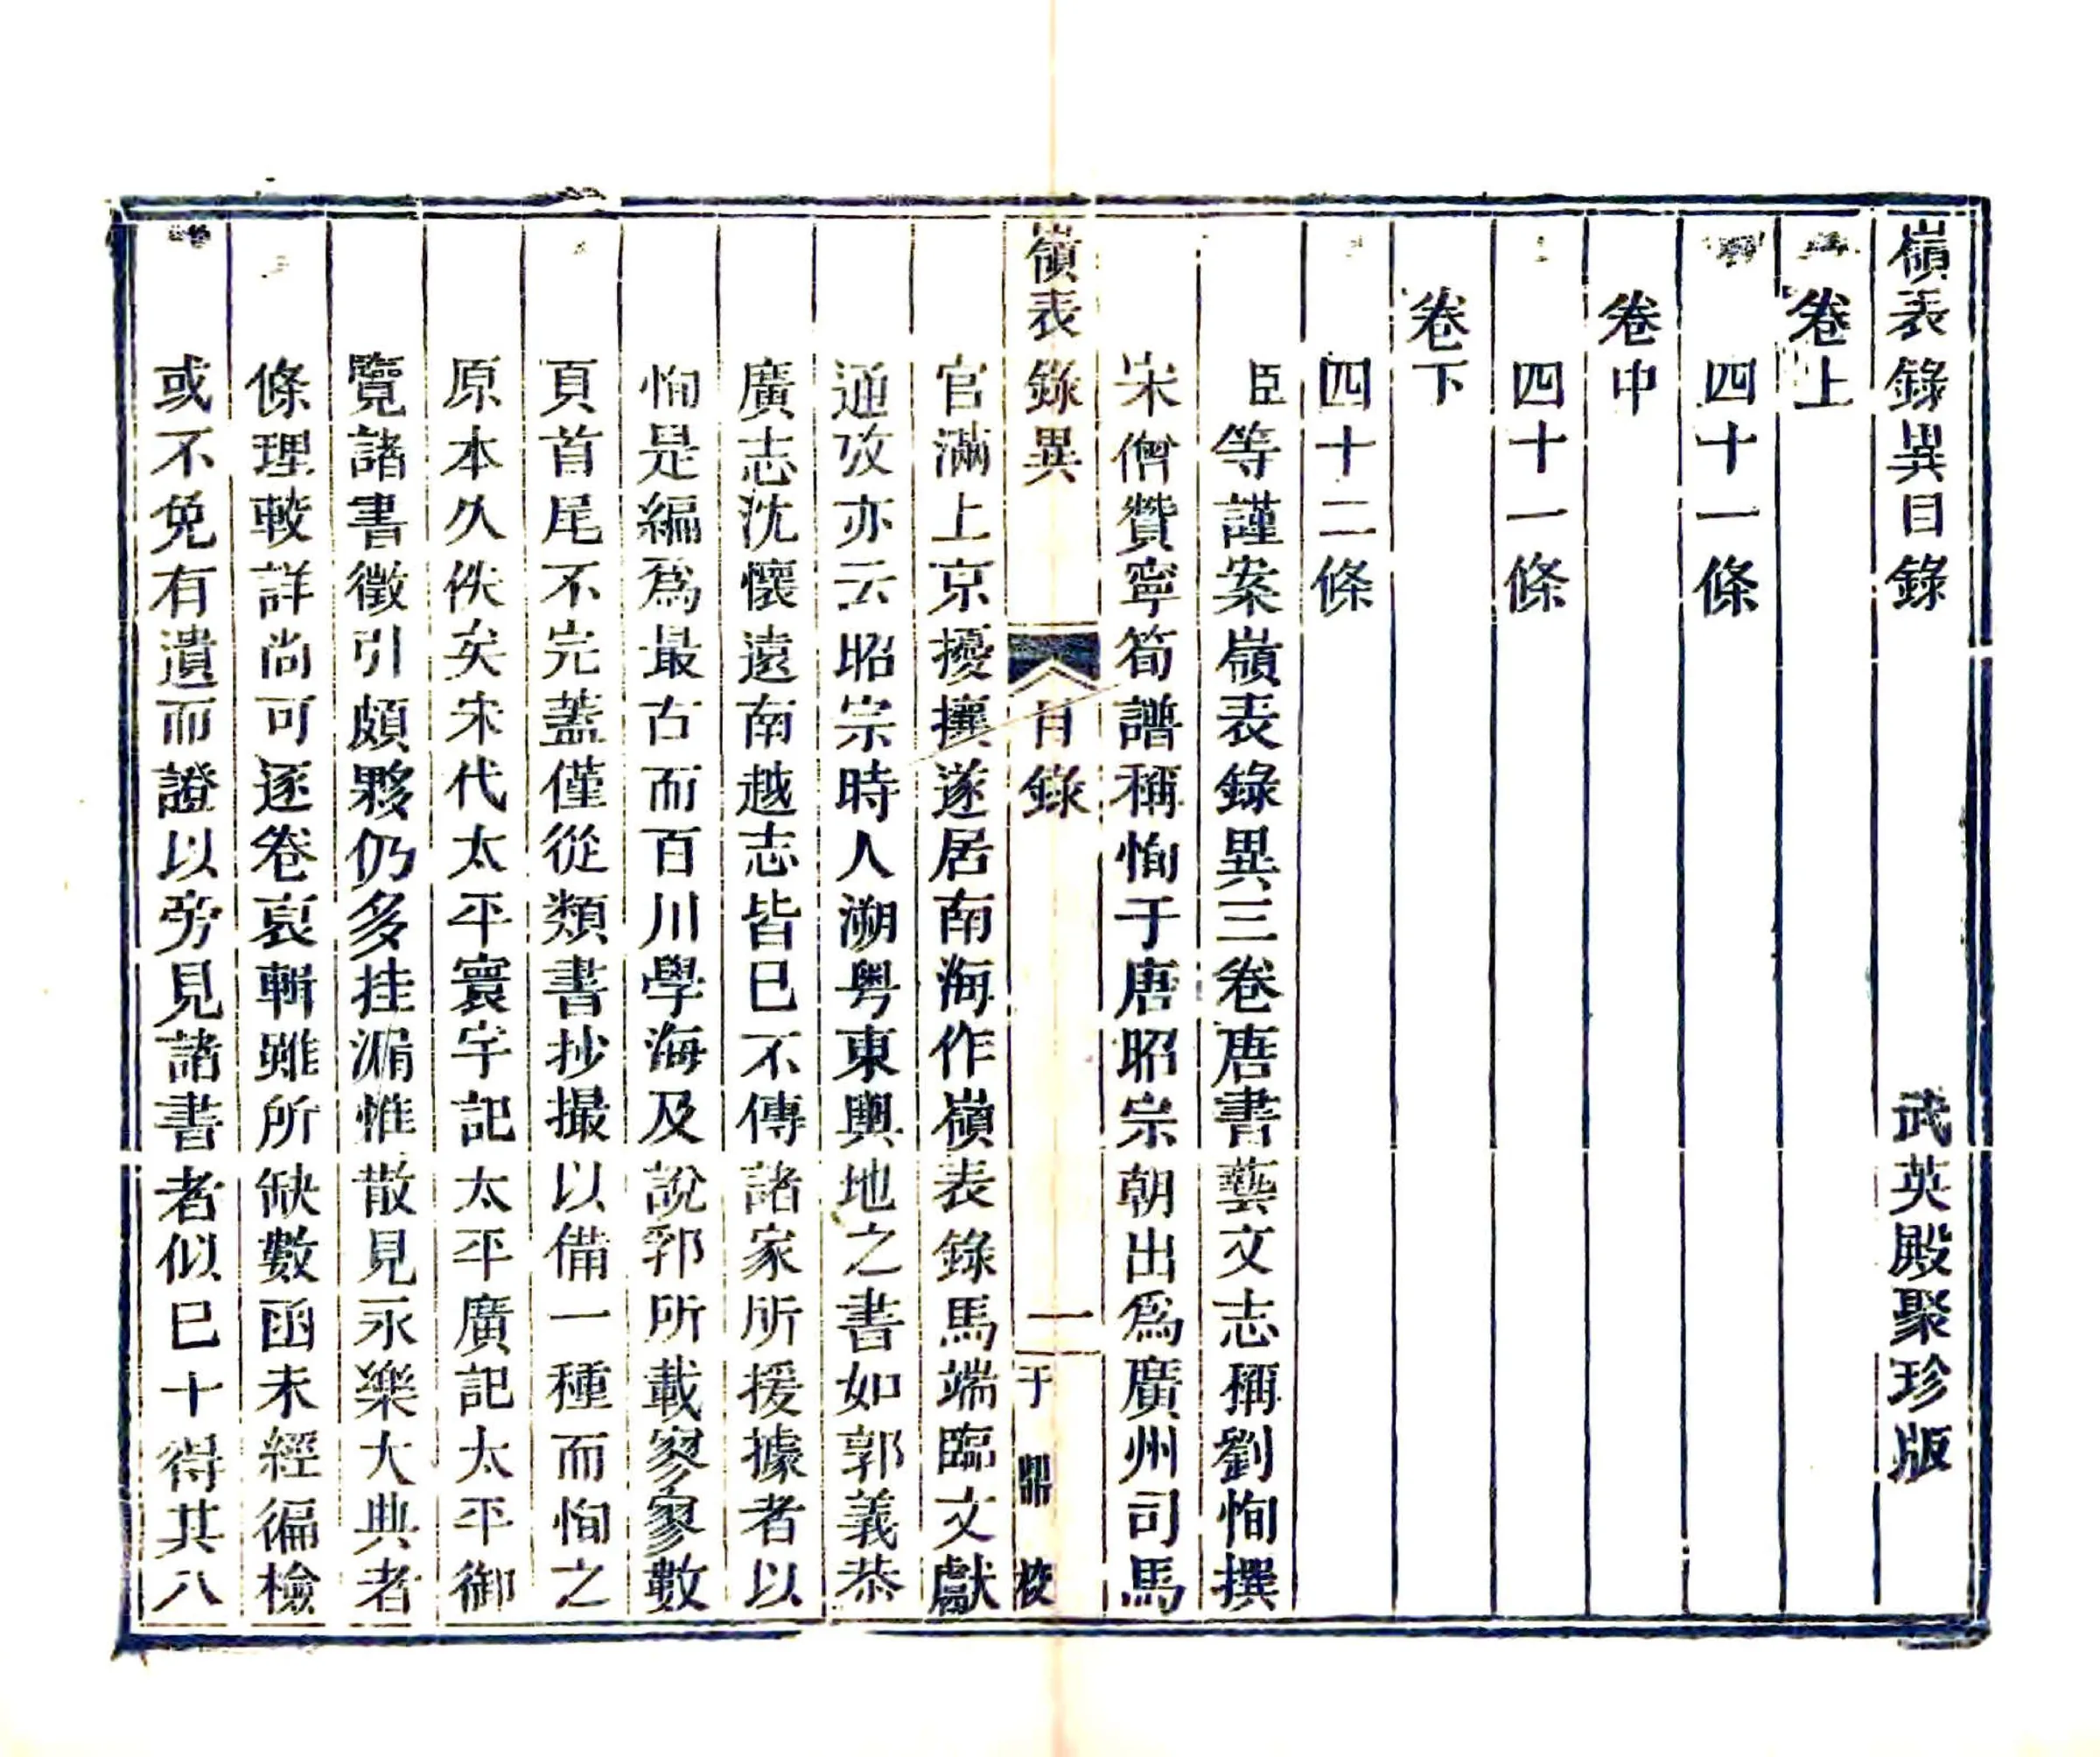 嶺表錄異目錄　武英殿聚珍版
卷上
四十一條
卷中
四十一條
卷下
四十二條
臣等謹案嶺表錄異三卷唐書藝文志稱劉恂撰
宋僧贊寧筍譜稱恂于唐昭宗朝出爲廣州司馬
嶺表錄異　目錄　一　于鼎校
官滿上京擾攘遂居南海作嶺表錄馬端臨文獻
通攷亦云昭宗時人溯粵東輿地之書如郭義恭
廣志沈懷遠南越志皆已不傳諸家所援據者以
恂是編爲最古而百川學海及說郛所載寥寥數
頁首尾不完蓋僅從類書抄撮以備一種而恂之
原本久佚矣宋代太平寰宇記太平廣記太平御
覽諸書徵引頗夥仍多挂漏惟散見永樂大典者
條理較詳尚可逐卷裒輯雖所缺數函未經徧檢
或不免有遺而證以旁見諸書者似已十得其八